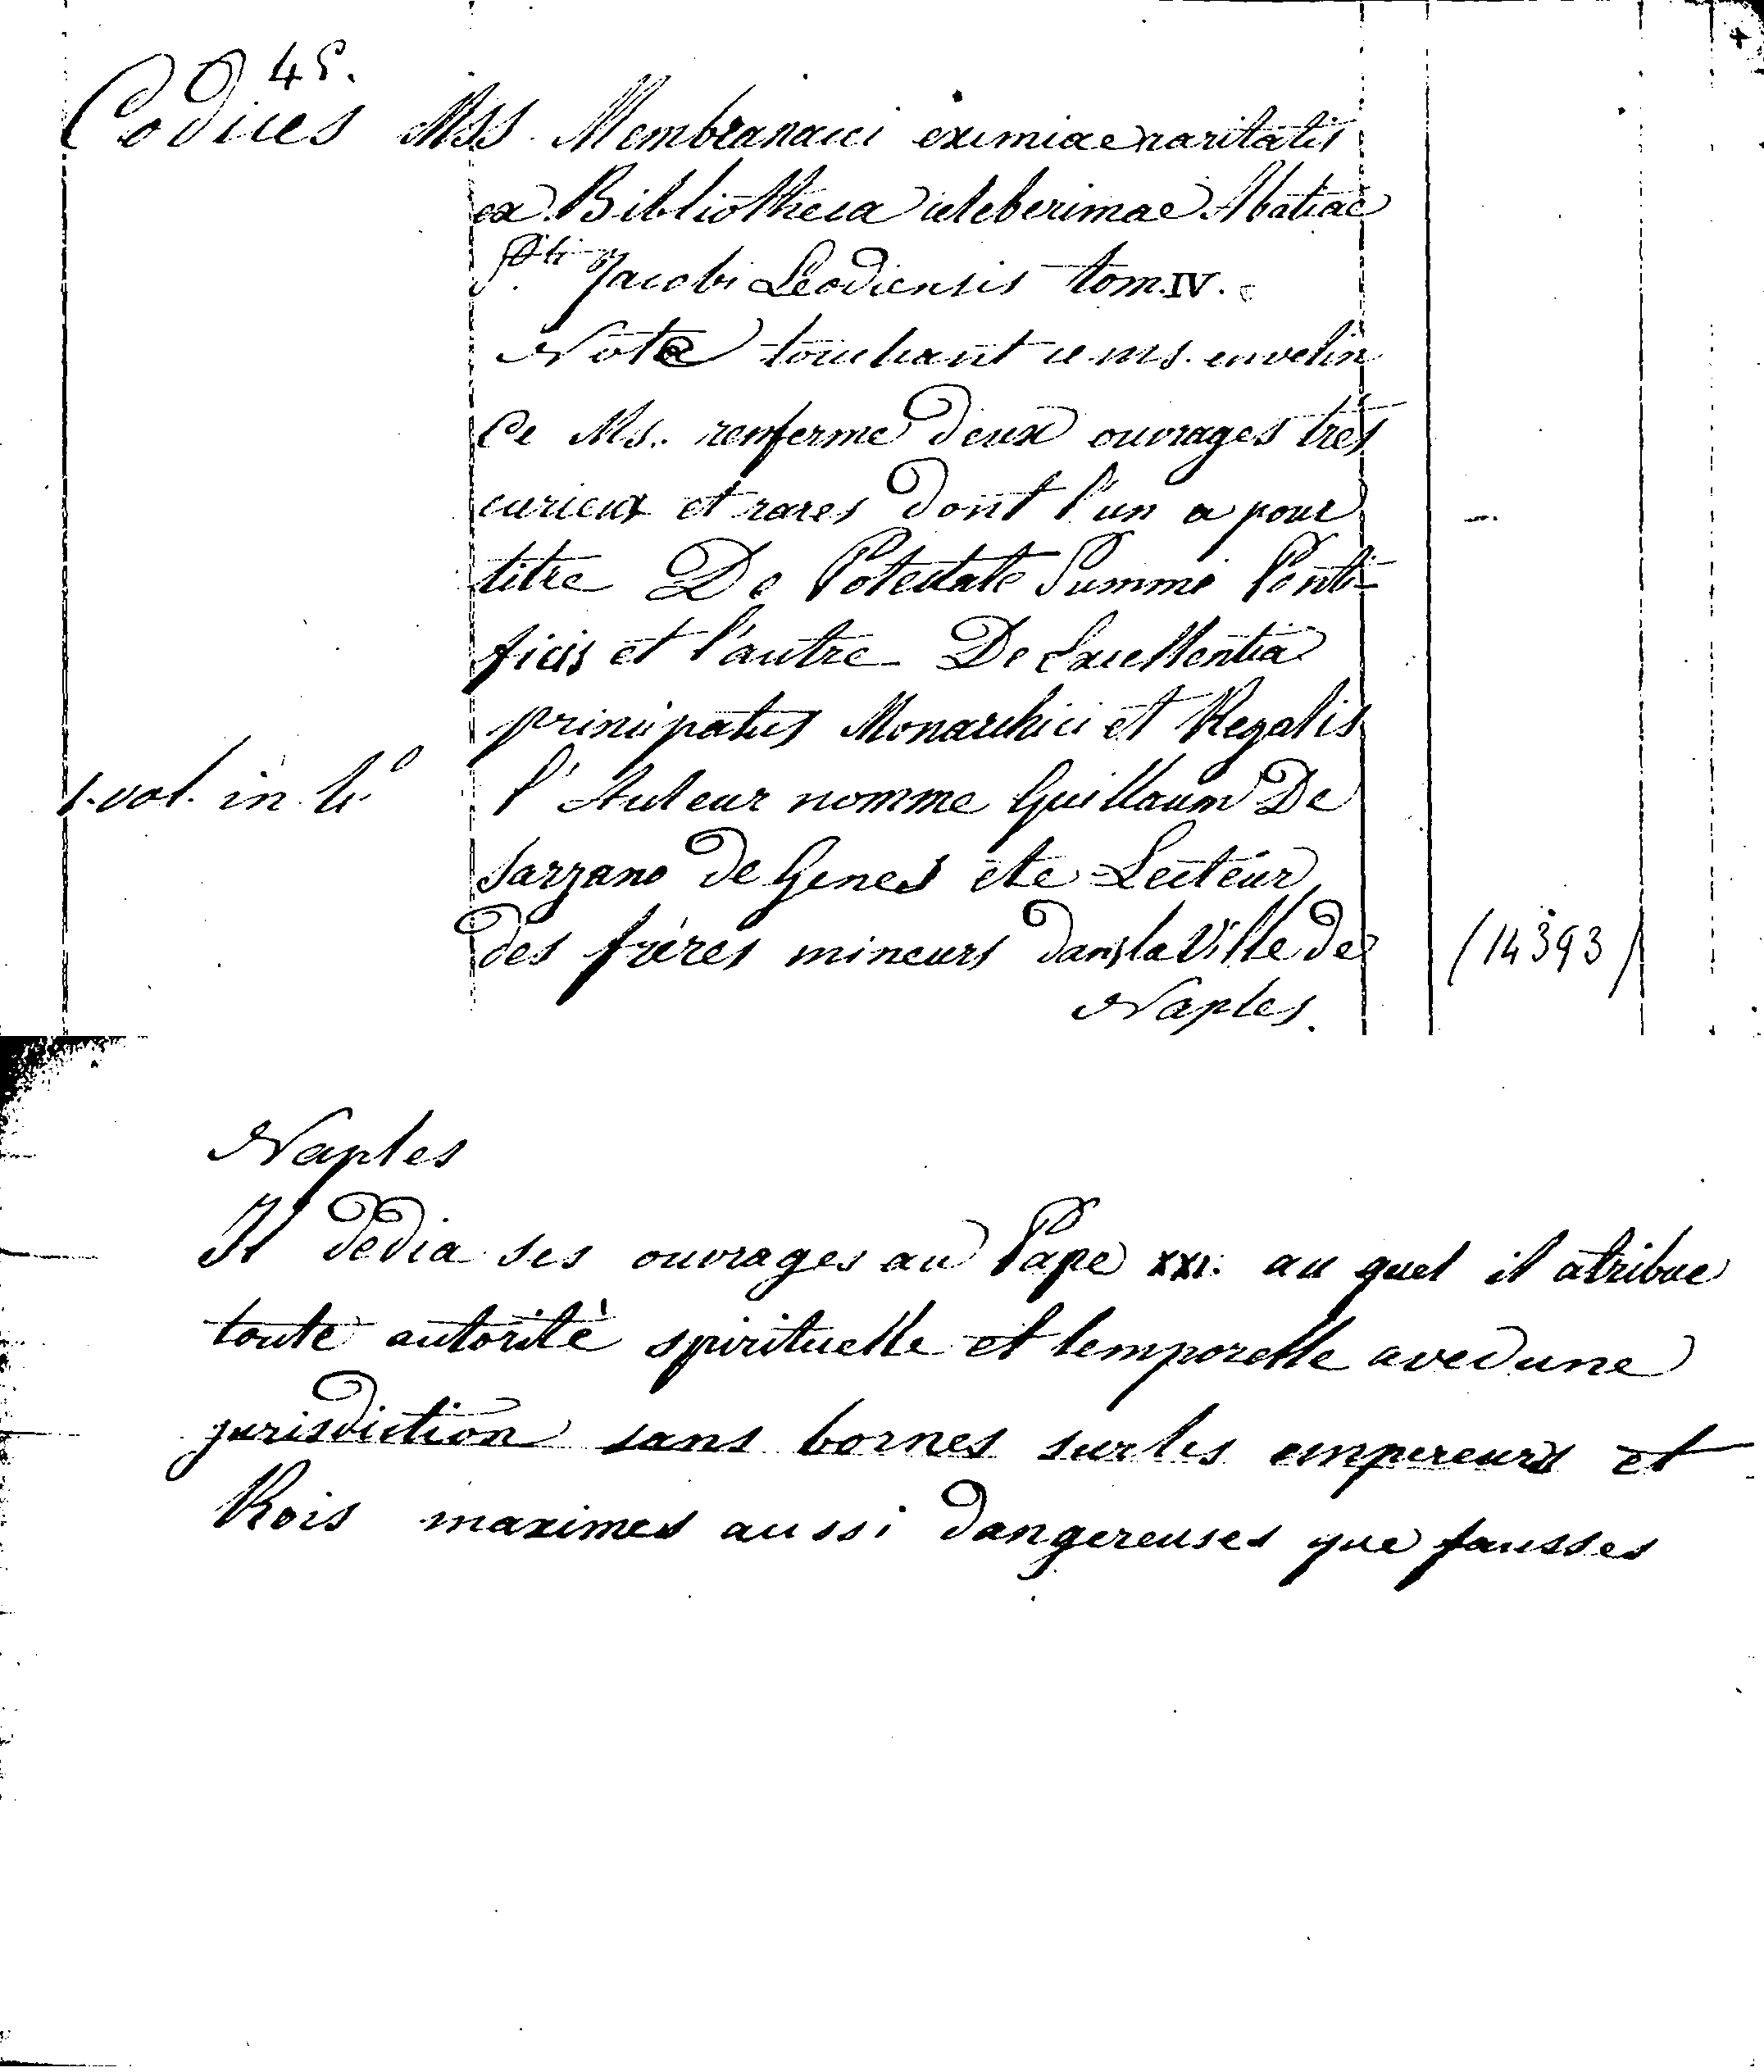 45.
Codices MSS. Membranacei eximiae raritatis
ex Bibliotheca celeberimae Abatiae
Sti Jacobi Leodiensis tom. IV.
Nota touchant ce ms. en velin
Ce Ms. renferme deux ouvrages très
curieux et rares dont l'un a pour
titre De Potestate Summi Ponti-
ficis et l'autre De Excellentia
principatus Monarchici et Regalis
1. vol. in 4.° l'Auteur nomme Guillaum De
Sarzano de Genes ete Lecteur
des frères mineurs dans la Ville de (14393)
Naples.
Naples
Il dedia ses ouvrages au Pape XXI. au quel il atribue
toute autoritè spirituelle et temporelle avec une
jurisdiction sans bornes sur les empereurs et
Rois maximes aussi dangereuses que fausses